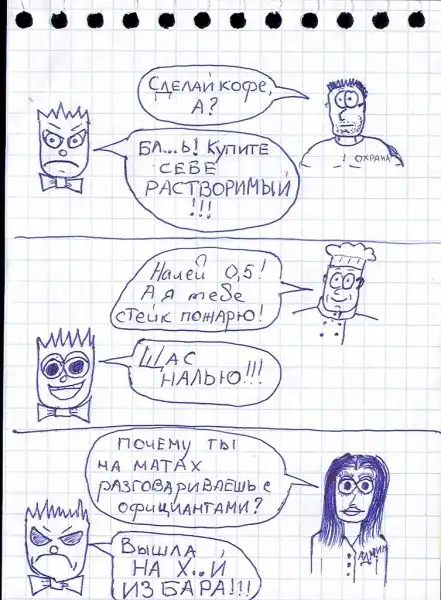 СДЕЛАЙ КОФЕ,
А?
БЛ...Ь! КУПИТЕ
СЕБЕ
РАСТВОРИМЫЙ
!!!
ОХРАНА
Налей 0,5!
А я тебе
стейк пожарю!
ЩАС
НАЛЬЮ!!!
ПОЧЕМУ ТЫ
НА МАТАХ
РАЗГОВАРИВАЕШЬ С
ОФИЦИАНТАМИ?
АДМИН
ВЫШЛА
НА Х..Й
ИЗ БАРА!!!